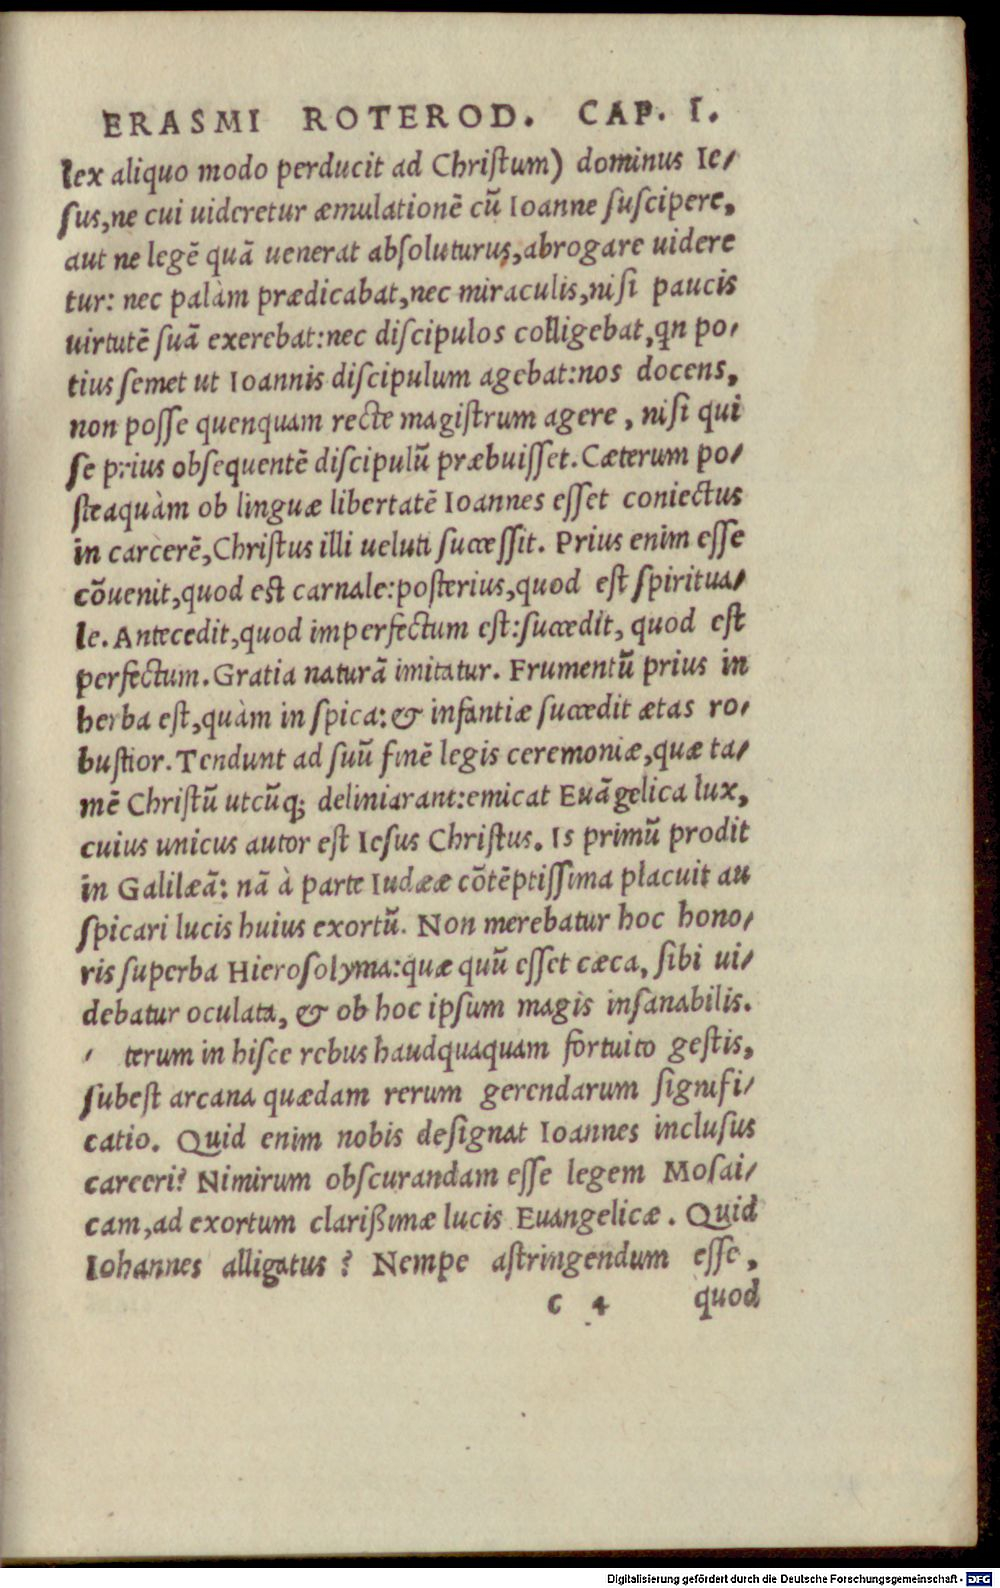 ERASMI ROTEROD. CAP. I.
lex aliquo modo perducit ad Christum) dominus Ie/
sus, ne cui uideretur æmulationē cū Ioanne suscipere,
aut ne legē quā uenerat absoluturus, abrogare uidere
tur: nec palàm prædicabat, nec miraculis, nisi paucis
uirtutē suā exerebat: nec discipulos colligebat, qn po/
tius semet ut Ioannis discipulum agebat: nos docens,
non posse quenquam recte magistrum agere, nisi qui
se prius obsequentē discipulū præbuisset. Cæterum po/
steaquàm ob linguæ libertatē Ioannes esset coniectus
in carcerē, Christus illi ueluti successit. Prius enim esse
cōuenit, quod est carnale: posterius, quod est spiritua/
le. Antecedit, quod imperfectum est: succedit, quod est
perfectum. Gratia naturā imitatur. Frumentū prius in
herba est, quàm in spica: & infantiæ succedit ætas ro/
bustior. Tendunt ad suū finē legis ceremoniæ, quæ ta/
mē Christū utcūq; deliniarant: emicat Euāgelica lux,
cuius unicus autor est Iesus Christus. Is primū prodit
in Galilæā: nā à parte Iudææ cōtēptissima placuit au
spicari lucis huius exortū. Non merebatur hoc hono/
ris superba Hierosolyma: quæ quū esset cæca, sibi ui/
debatur oculata, & ob hoc ipsum magis insanabilis.
terum in hisce rebus haudquaquam fortuito gestis,
subest arcana quædam rerum gerendarum signifi/
catio. Quid enim nobis designat Ioannes inclusus
carceri? Nimirum obscurandam esse legem Mosai/
cam, ad exortum clarißimæ lucis Euangelicæ. Quid
Iohannes alligatus? Nempe astringendum esse,
c 4 quod
Digitalisierung gefördert durch die Deutsche Forschungsgemeinschaft - DFG